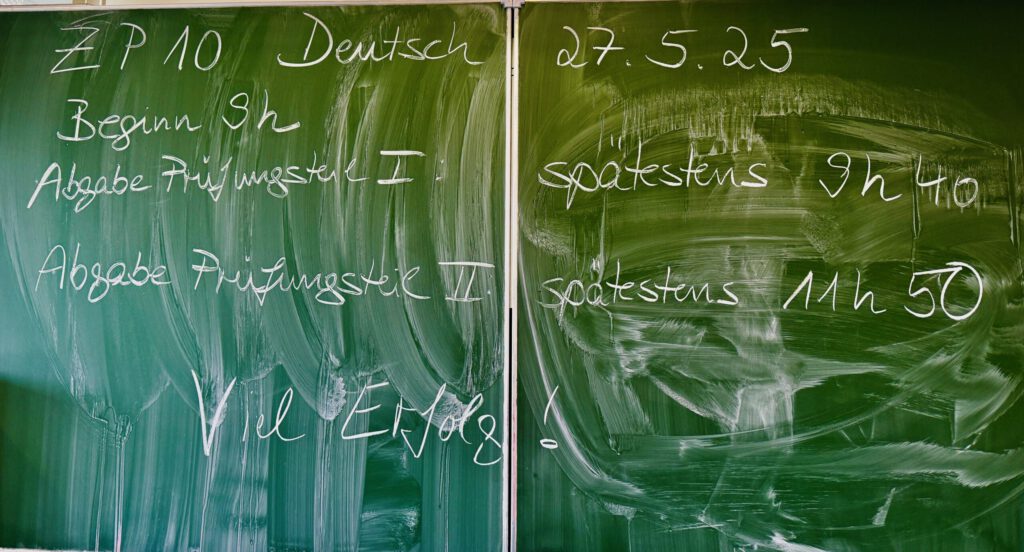 ZP 10 Deutsch 27.5.25
Beginn 9h
Abgabe Prüfungsteil I: spätestens 9h 40
Abgabe Prüfungsteil II: spätestens 11h 50
Viel Erfolg!